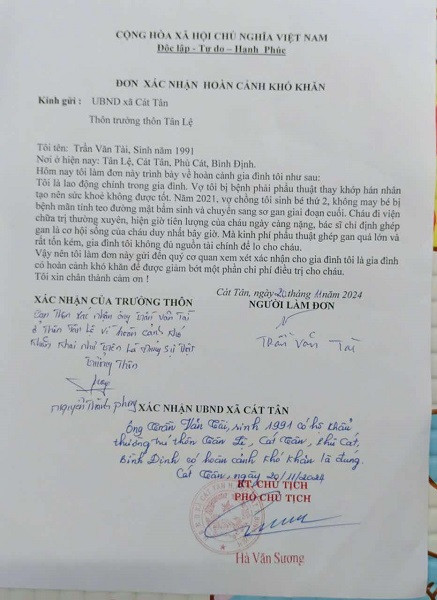 CỘNG HÒA XÃ HỘI CHỦ NGHĨA VIỆT NAM
Độc lập - Tự do – Hạnh Phúc
ĐƠN XÁC NHẬN HOÀN CẢNH KHÓ KHĂN
Kính gửi : UBND xã Cát Tân
Thôn trưởng thôn Tân Lệ
Tôi tên: Trần Văn Tài, Sinh năm 1991
Nơi ở hiện nay: Tân Lệ, Cát Tân, Phù Cát, Bình Định.
Hôm nay tôi làm đơn này trình bày về hoàn cảnh gia đình tôi như sau:
Tôi là lao động chính trong gia đình. Vợ tôi bị bệnh phải phẩu thuật thay khớp hán nhân
tạo nên sức khoẻ không được tốt. Năm 2021, vợ chồng tôi sinh bé thứ 2, không may bé bị
bệnh mãn tính teo đường mật bẩm sinh và chuyển sang sơ gan giai đoạn cuối. Cháu đi viện
chữa trị thường xuyên, hiện giờ tiên lượng của cháu ngày càng nặng, bác sĩ chỉ định ghép
gan là cơ hội sống của cháu duy nhất bây giờ. Mà kinh phí phẩu thuật ghép gan quá lớn và
rất tốn kém, gia đình tôi không đủ nguồn tài chính để lo cho cháu.
Vậy nên tôi làm đơn này gửi đến quý cơ quan xem xét xác nhận cho gia đình tôi là gia đình
có hoàn cảnh khó khăn để được giảm bớt một phần chi phí điều trị cho cháu.
Tôi xin chân thành cảm ơn !
Cát Tân, ngày 20 tháng 11 năm 2024
XÁC NHẬN CỦA TRƯỞNG THÔN
NGƯỜI LÀM ĐƠN
Ban Thôn xác nhận ông Trần Văn Tài
ở Thôn Tân Lệ Vì hoàn cảnh khó
Khăn Khai như trên Là đúng Sự thật
Trưởng Thôn
Trần Văn Tài
Nguyễn Thành Phong
XÁC NHẬN UBND XÃ CÁT TÂN
Ông Trần Văn Tài, sinh 1991 có hộ khẩu
thường trú thôn Tân Lệ, Cát Tân, Phù Cát,
Bình Định có hoàn cảnh khó khăn là đúng.
Cát Tân, ngày 20/11/2024
KT. CHỦ TỊCH
PHÓ CHỦ TỊCH
Hà Văn Sương